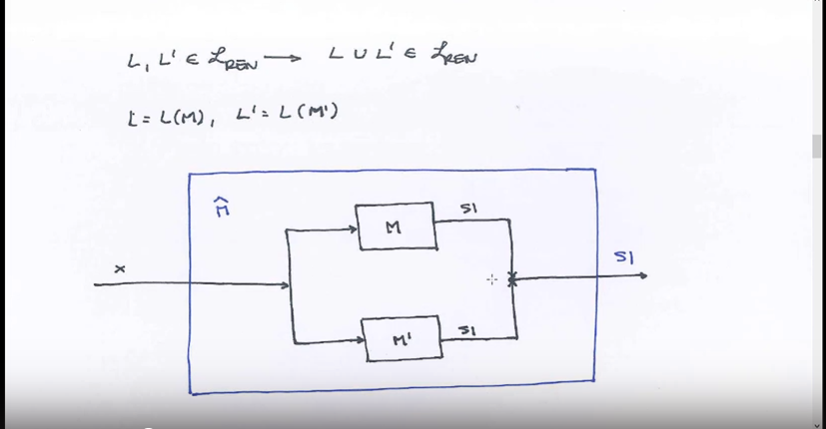 L, L' ∈ ℒREN → L ∪ L' ∈ ℒREN
L = L(M), L' = L(M')
M̂
M
SI
x
SI
M'
SI